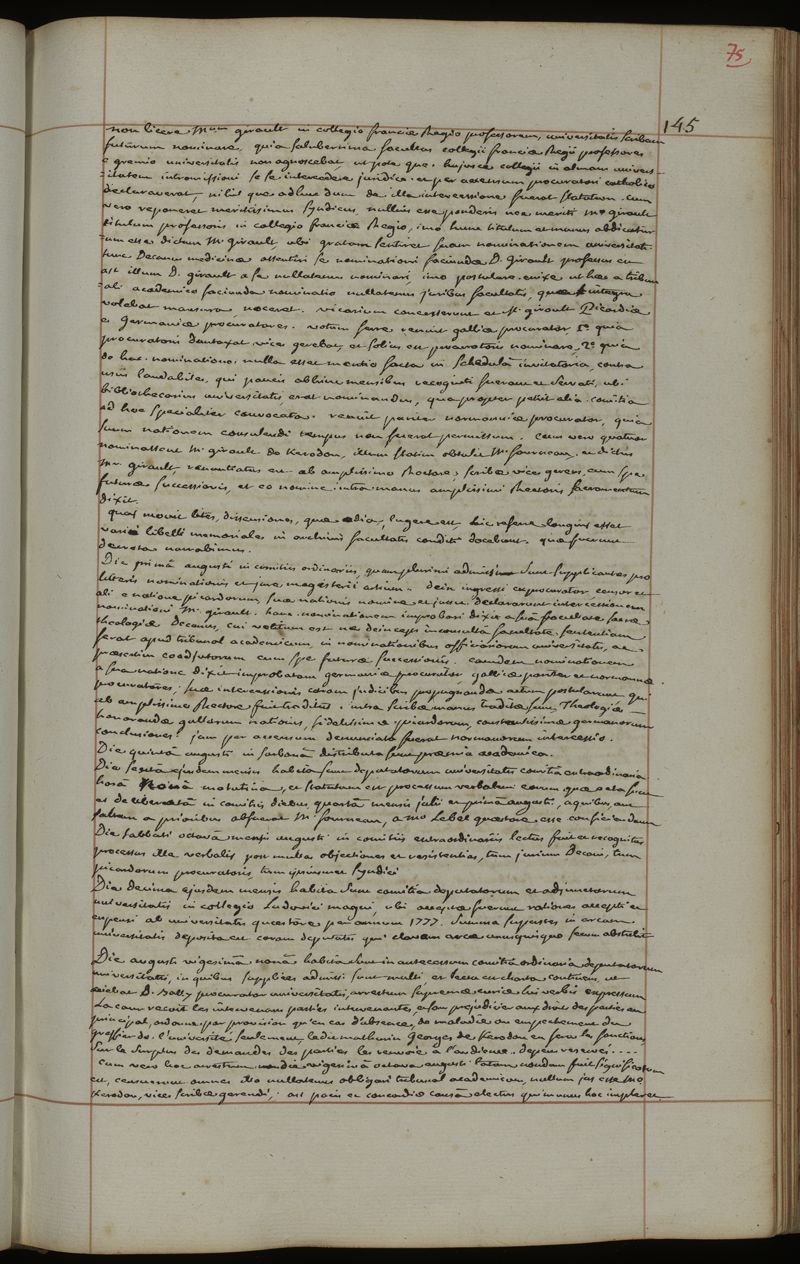 75
145
non licere Mum girault in collegio franciæ Regio professorem, universitatis scribam
futurum nominare, quia saluberrima facultas collegii franciæ Regii professores
e gremio universitatis non agnoscebat, ut pote quæ hujusce collegii in almam univers-
-itatem intromissioni se se intercedere juridice et per accensum procuratori catholico
declaraverat, nihil que adhuc dum de illa intercessione fuerat statutum. cum
vero reponeret meritissimus syndicus, nullius esse ponderis nec meriti Mo girault
titulum professoris in collegio franciæ Regio, imo hunc titulum et munus abdicatur
-um esse dictum M. girault, ubi gratam sentiret suam nominationem universitati
tunc Decanus medicinæ assentiri se nominationi faciendæ D. girault professus est
ast illum D. girault a se nullatenus nominari, imo postulare enixe ut hæc a tribun
-ali academico facienda nominatio nullatenus juribus facultatis, quæ integra
volebat mansura, noceret. vicarium concesserunt et M. girault Picardiæ
e Germaniæ procuratores. votum ferre renuit galliæ procurator 1o quia
procuratoris duntaxat vices gerebat, et solius est procuratoris nominare, 2o quia
de hac nominatione nulla esset mentio facta in schedula invitatoria, contra
usus laudabiles, qui paucis abhinc mensibus recogniti fuerant et servati, ubi
bibliothecarius universitatis erat nominandus, quapropter petiit alia comitia
ad hoc specialiter convocata. renuit pariter normaniæ procurator, quia
suam nationem consulendi tempus non fuerat permissum. Cum vero quatuor
nominassent M. girault de Kerodon, illum statim obtulit M. fourneau, et dictus
Mr girault, renuntiatus est ab amplissimo Rectore, scribæ vices gerens, cum spe
futuræ successionis, et eo nomine intra manus amplissimi Rectoris sacramentum
dixit.
quas movit lites, dissensiones, quæ odia, lugere est hic referre longius esset
varii libelli memoriales in archivis facultatis conditi docebunt. quæ fuerunt
decreta narrabimus.
Die primâ augusti in comitiis ordinariis, quamplurimi admissi sunt supplicantes pro
litteris nominationis et jure magisterii artium. dein ingressi exprocurator censor et
alii e natione picardorum, suæ nationis nomine et jussu, declararunt intercessionem
nominationi M. girault. hanc nominationem improbari dixit a suâ facultate sacræ
theologiæ Decanus, cui vetitum est ne deinceps inconsulta facultate sententiam
ferat apud tribunal academicum, in nominationibus officiariorum universitatis, ac
præsertim coadjutorum cum spe futuræ successionis. eamdem nominationem
a sua natione dixit improbatam germaniæ procurator, galliæ pariter et normaniæ
procuratores, suæ intercessionis coram judicibus propugnandæ actum postularunt qui
ab amplissimo Rectore fuit traditus. intra scribæ manus traditæ sunt Theologiæ
honorandæ gallorum nationis, fidelissimæ picardorum, constantissimæ germanorum
conclusiones. jam per accensum denunciata fuerat normanorum intercessio.
Die quintâ augusti in sorbonâ distributa sunt præmia academica.
Die sextâ ejusdem mensis habita sunt deputatorum universitatis comitia extraordinaria
horâ nonâ matutinâ, et statutum est processum verbalem eorum quæ acta fuerunt
ac deliberata in comitiis diebus quartâ mensis julii et primâ augusti, a quibus, aut
saltem a prioribus abfuerat M. fourneau, a Mo Lebel quæstore esse conficiendum
Die sabbati octavâ mensis augusti in comitiis extraordinariis lectus fuit et recognitus
processus ille verbalis post multas objectiones et resistentias, tum jurium Decani, tum
picardorum procuratoris, tum ipsiusmet syndici
Die decimâ ejusdem mensis habita sunt comitia deputatorum et adjunctorum
universitatis in collegio Ludovici magni, ubi auditæ fuerunt rationes accepti et
expensi ab universitatis quæstore pro anno 1777. summa superstes in arcam
universitatis deposita est coram deputatis qui clavem arcæ unusquisque secum abstulit
Die augusti vigesimâ nonâ habita sunt in antecessum comitia ordinaria deputatorum
universitatis, in quibus supplices admissi sunt multi, et lecta est charta continens, ut
aiebat D. Bolly procurator universitatis, arrestum supremæ curiæ his verbis expressum
La cour reçoit les intervenans parties intervenantes, et sans préjudicier aux droits des parties au
principal, ordonne par provision qu'en cas d'absence, de maladie ou empêchement du
greffier de l'université seulement, ledit mathurin Georges de Kerodon en fera les fonctions
sur le surplus des demandes des parties les renvoie à l'audience.. dépens réservés....
Cum vero hoc arrestum die vigesimâ octavâ augusti latum nondum fuit significatum
est, censuerunt omnes illo nullatenus obligari tribunal academicum, nullum jus esse Mo
Kerodon, vices scribæ gerendi, ast pacis et concordiæ causâ electus qui munus hoc impleret